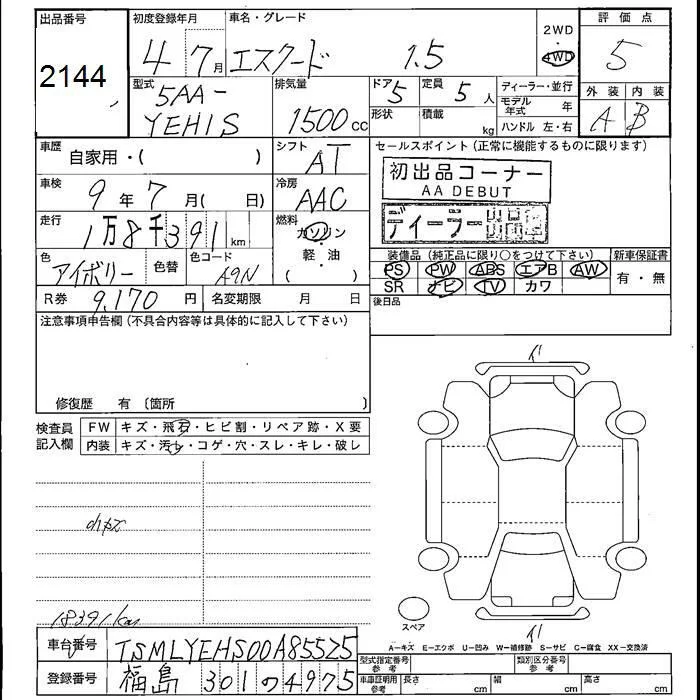 出品番号
2144
初度登録年月
4 7月
車名・グレード
エスクード 1.5
2WD
4WD
評価点
5
外装 内装
A B
型式
5AA-
YEH1S
排気量
1500cc
ドア
5
定員
5人
形状
積載
kg
ディーラー・並行
モデル年式 年
ハンドル 左・右
車歴
自家用・( )
シフト
AT
車検
9年7月( 日)
冷房
AAC
走行
1万8千391km
燃料
ガソリン
軽・油
( )
色
アイボリー
色替
色コード
A9N
R券 9,170円
名変期限 月 日
セールスポイント(正常に機能するものに限ります)
初出品コーナー
AA DEBUT
ディーラー
装備品(純正品に限り○をつけて下さい)
PS PW ABS エアB AW
SR ナビ TV カワ
新車保証書
有・無
後日品
注意事項申告欄(不具合内容等は具体的に記入して下さい)
修復歴 有〔箇所 〕
検査員記入欄
FW キズ・飛石・ヒビ割・リペア跡・X要
内装 キズ・汚レ・コゲ・穴・スレ・キレ・破レ
18391km
イ
イ
スペア
A−キズ E−エクボ U−凹み W−補修跡 S−サビ C−腐食 XX−交換済
車台番号 TSMLYEHS00A855525
登録番号 福島 301 つ 4975
型式指定番号参考
類別区分番号参考
車庫証明用参考
長さ cm 幅 cm 高さ cm